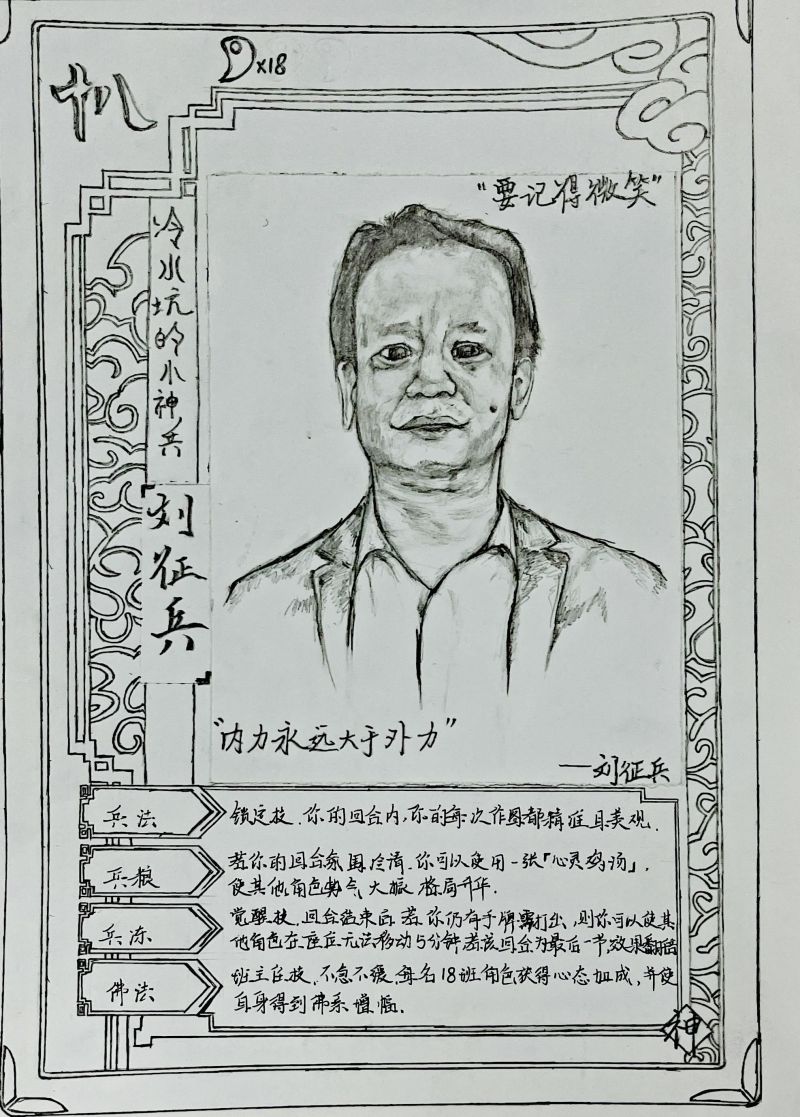 ×18
十八
"要记得微笑"
冷水坑的小神兵
刘征兵
"内力永远大于外力"
——刘征兵
兵法
锁定技,你的回合内,你的每次作图都精准且美观.
兵粮
若你的回合氛围冷清,你可以使用一张「心灵鸡汤」,
使其他角色势气大振,格局升华.
兵冻
觉醒技,回合结束后,若你仍有手牌需打出,则你可以使其
他角色在座位无法移动5分钟,若该回合为最后一节,效果翻倍
佛法
班主任技,不急不缓,每名18班角色获得心态加成,并使
自身得到佛系增幅.
神